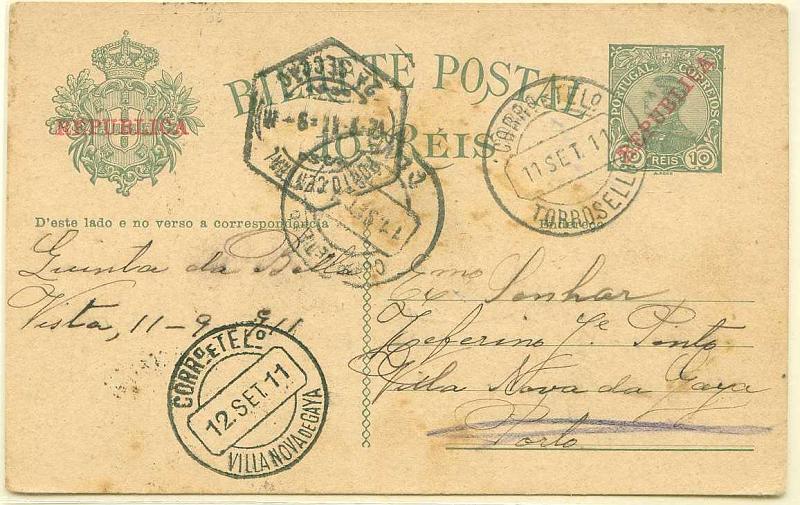 BILHETE POSTAL
10 RÉIS
REPUBLICA
PORTUGAL CORREIOS
REPUBLICA
10 RÉIS 10
CORRO E TELO
11 SET. 11
TORROSELLO
2A SECÇÃO
PORTO CENTRAL
D'este lado e no verso a correspondencia
Endereço
Quinta da Bella
Vista, 11-9-911
Exmo Senhor
Zeferino Je Pinto
Villa Nova da Gaya
Porto
CORRO E TELO
12. SET. 11
VILLA NOVA DE GAYA